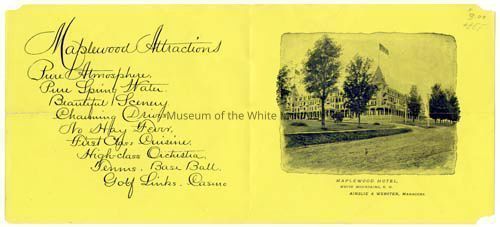 Maplewood Attractions
Pure Atmosphere.
Pure Spring Water.
Beautiful Scenery
Charming Drives
No Hay Fever.
First Class Cuisine.
High-class Orchestra
Tennis. Base Ball.
Golf Links. Casino
Museum of the White
MAPLEWOOD HOTEL,
WHITE MOUNTAINS, N. H.
AINSLIE & WEBSTER, MANAGERS.